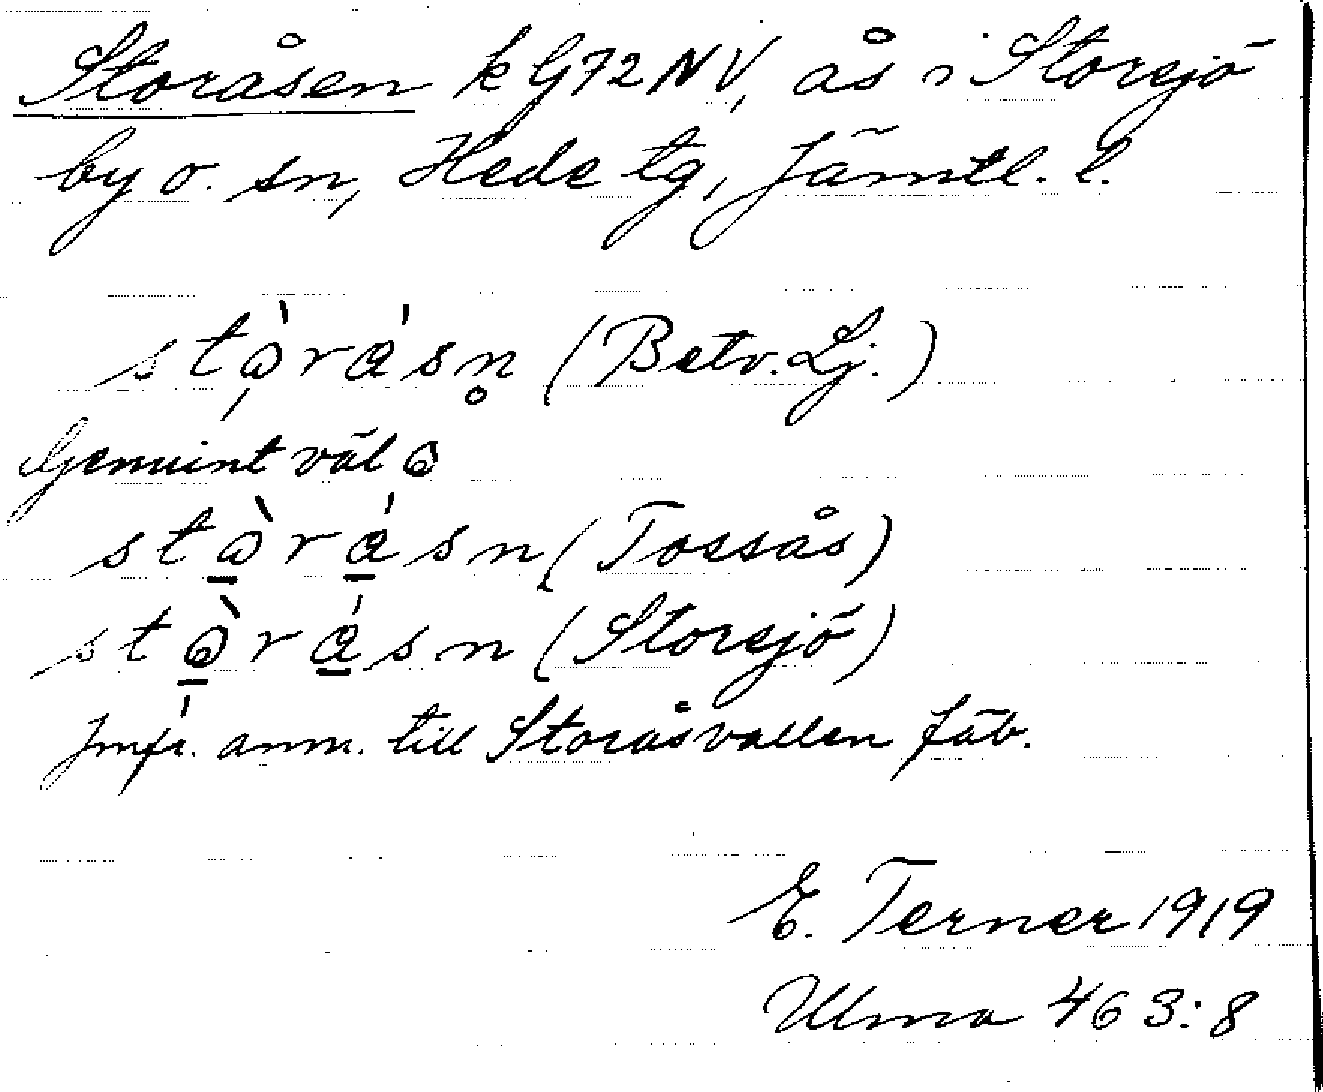 Storåsen k G72NV, ås i Storsjö
by o. sn, Hede tg, Jämtl. l.
(Betv. Lj.)
Genuint väl
(Tossås)
(Storsjö)
Jmfr. anm. till Storåsvallen fäb.
E. Terner 1919
Ulma 463:8